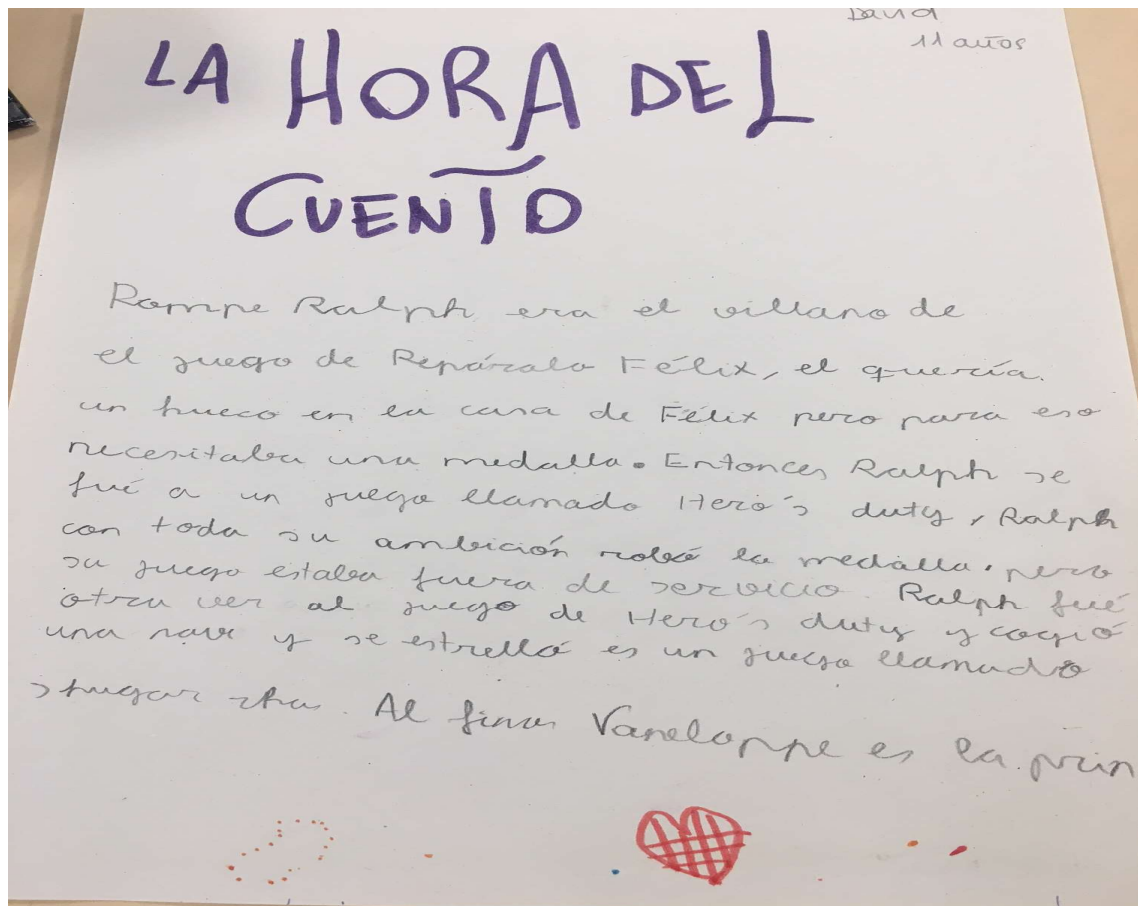 David
11 años
LA HORA DEL
CUENTO
Rompe Ralph era el villano de
el juego de Repáralo Félix, el quería.
un hueco en la casa de Félix pero para eso
necesitaba una medalla. Entonces Ralph se
fué a un juego llamado Hero's duty, Ralph
con toda su ambición robó la medalla, pero
su juego estaba fuera de servicio. Ralph fué
otra vez al juego de Hero's duty y cogió
una nave y se estrelló es un juego llamado
shugar. Al final Vaneloppe es la prin